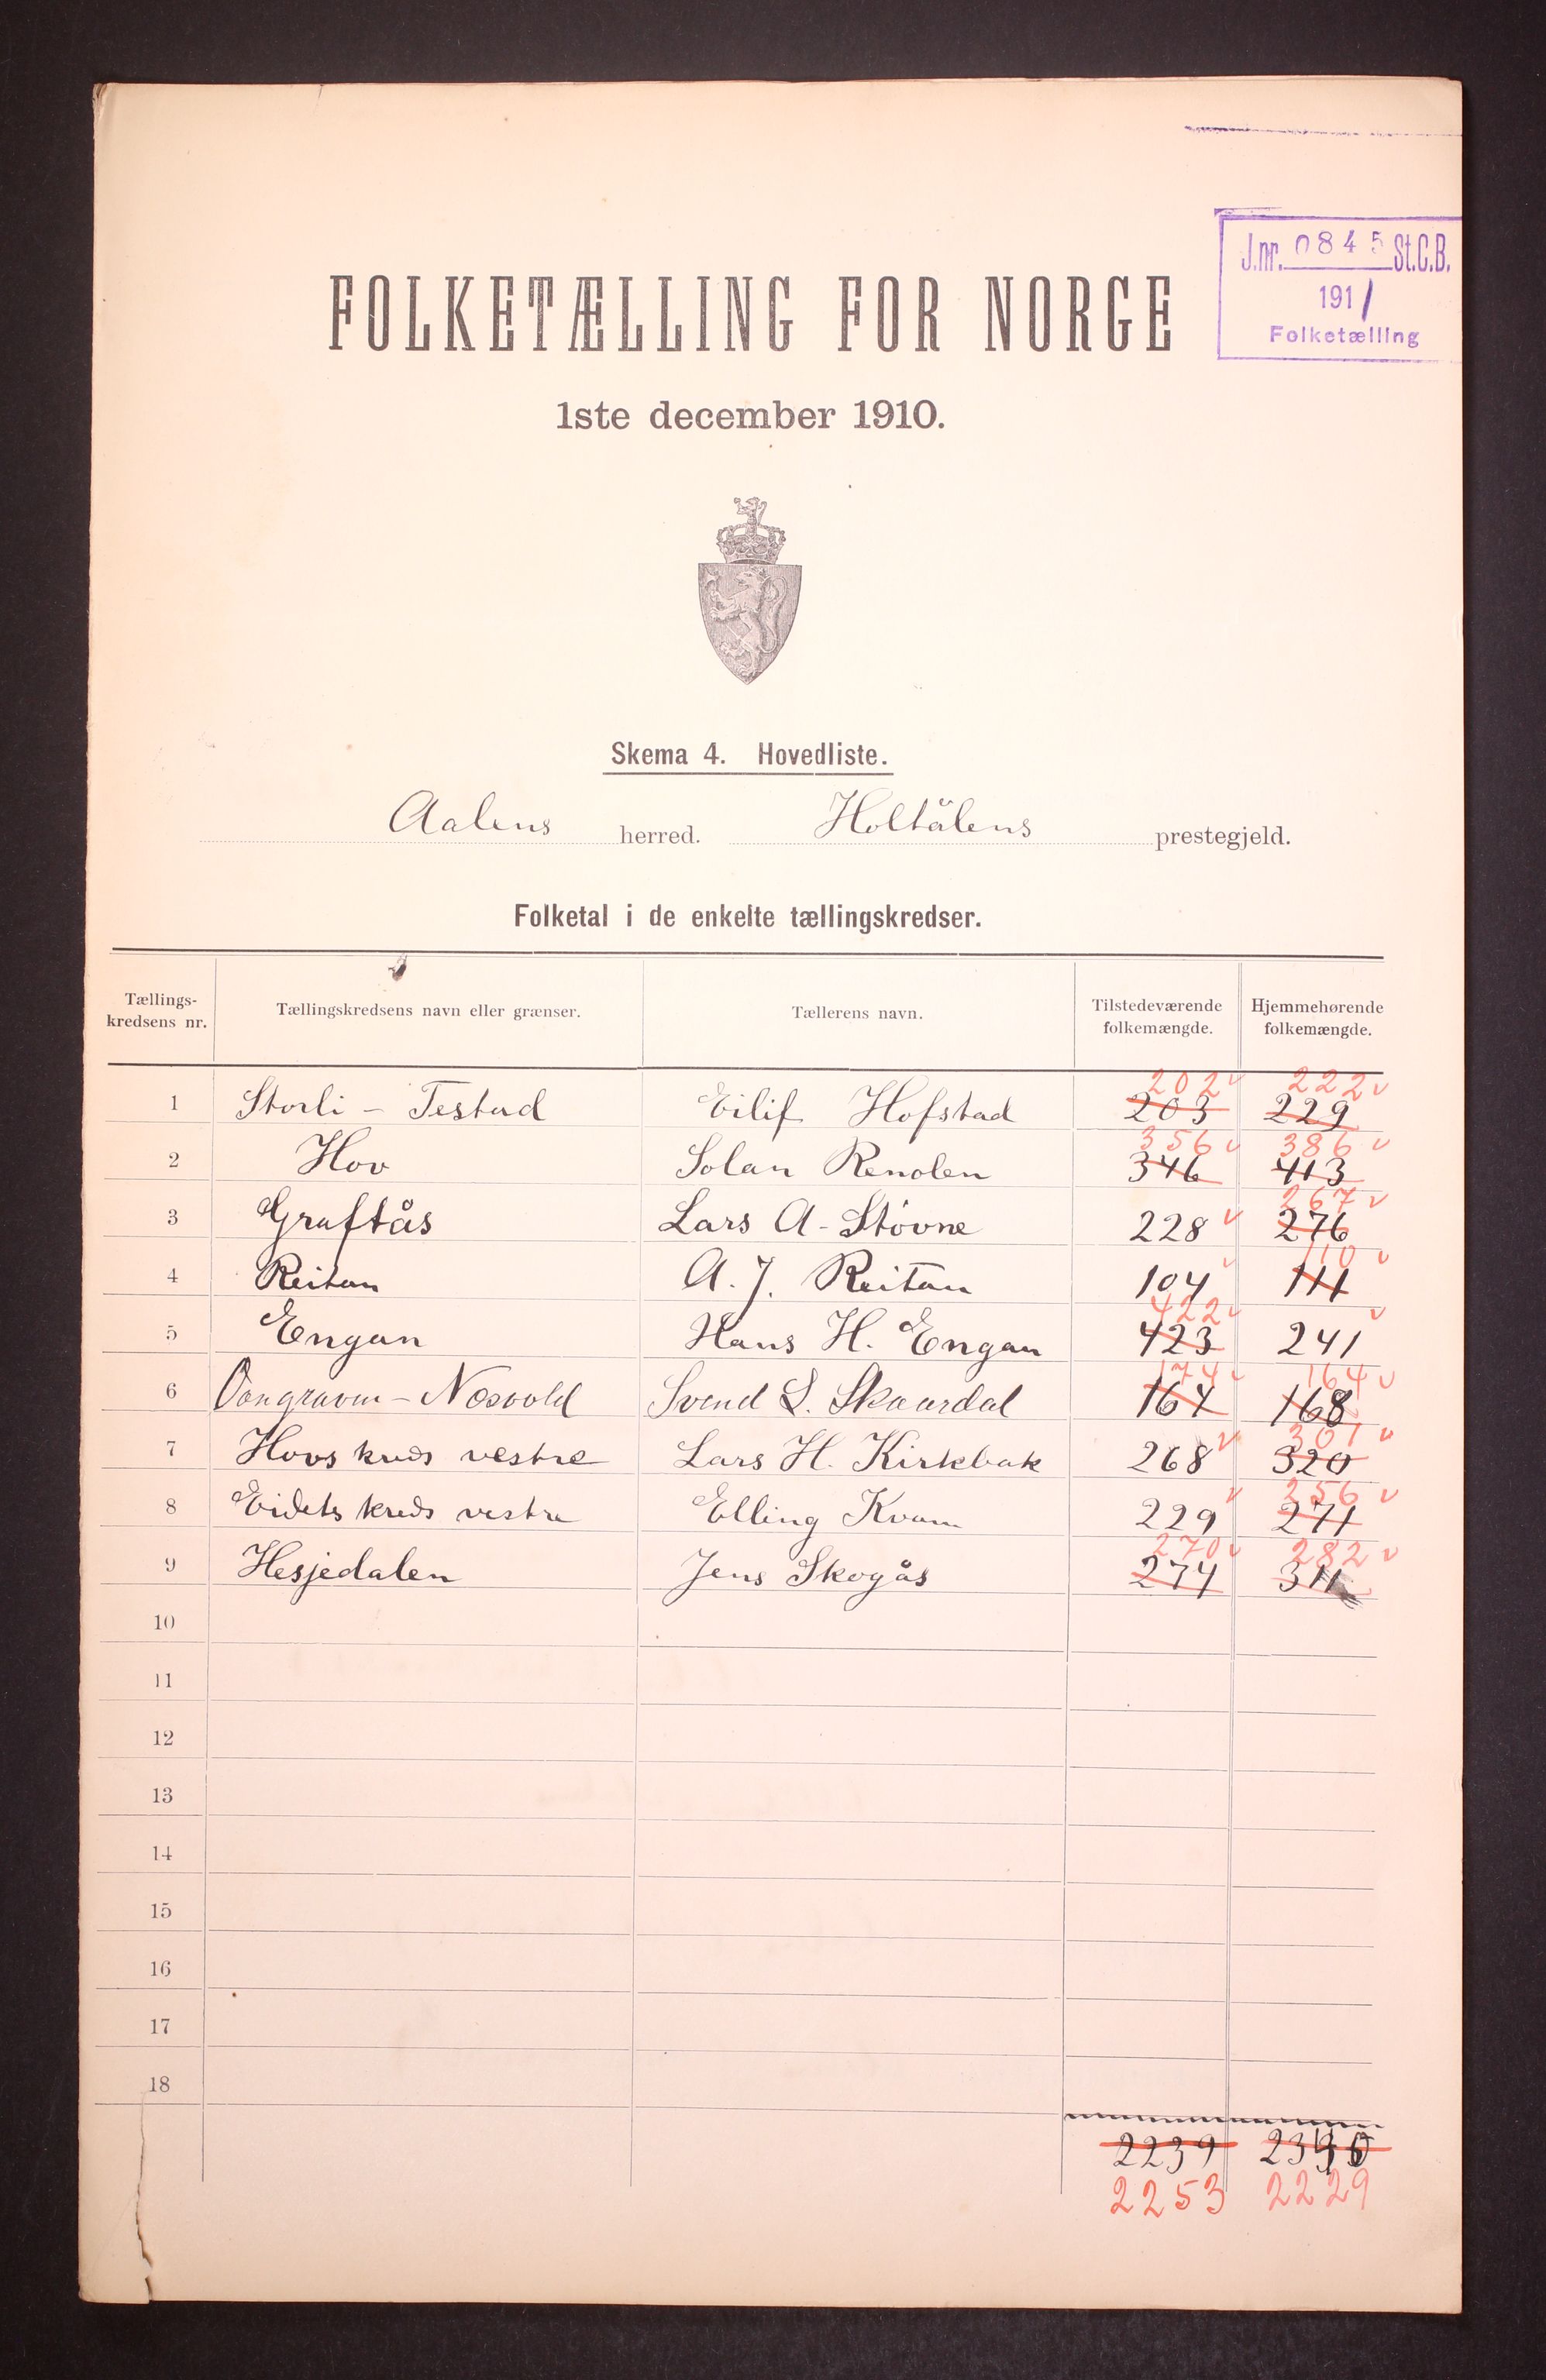 J.nr. 0845 St.C.B.
1911
Folketælling
FOLKETÆLLING FOR NORGE
1ste december 1910.
Skema 4. Hovedliste.
Aalens herred. Holtålens prestegjeld.
Folketal i de enkelte tællingskredser.
Tællings-kredsens nr. Tællingskredsens navn eller grænser. Tællerens navn. Tilstedeværende folkemængde. Hjemmehørende folkemængde.
202 v 222 v
1 Storli - Testad Eilif Hofstad 203 229
356 v 386 v
2 Hov Solan Renolen 346 413
267 v
3 Graftås Lars A. Stövne 228 v 276
110 v
4 Reitan A. J. Reitan 104 v 111
422 v
5 Engan Hans H. Engan 423 241 v
174 v 164 v
6 Nosvold Svend S. Skaardal 164 168
301 v
7 Hovs kreds vestre Lars H. Kirkbak 268 v 320
256 v
8 Eidets kreds vestre Elling Kvam 229 v 271
270 v 282 v
9 Hesjedalen Jens Skogås 274 311
10
11
12
13
14
15
16
17
18
2239
2253 2229